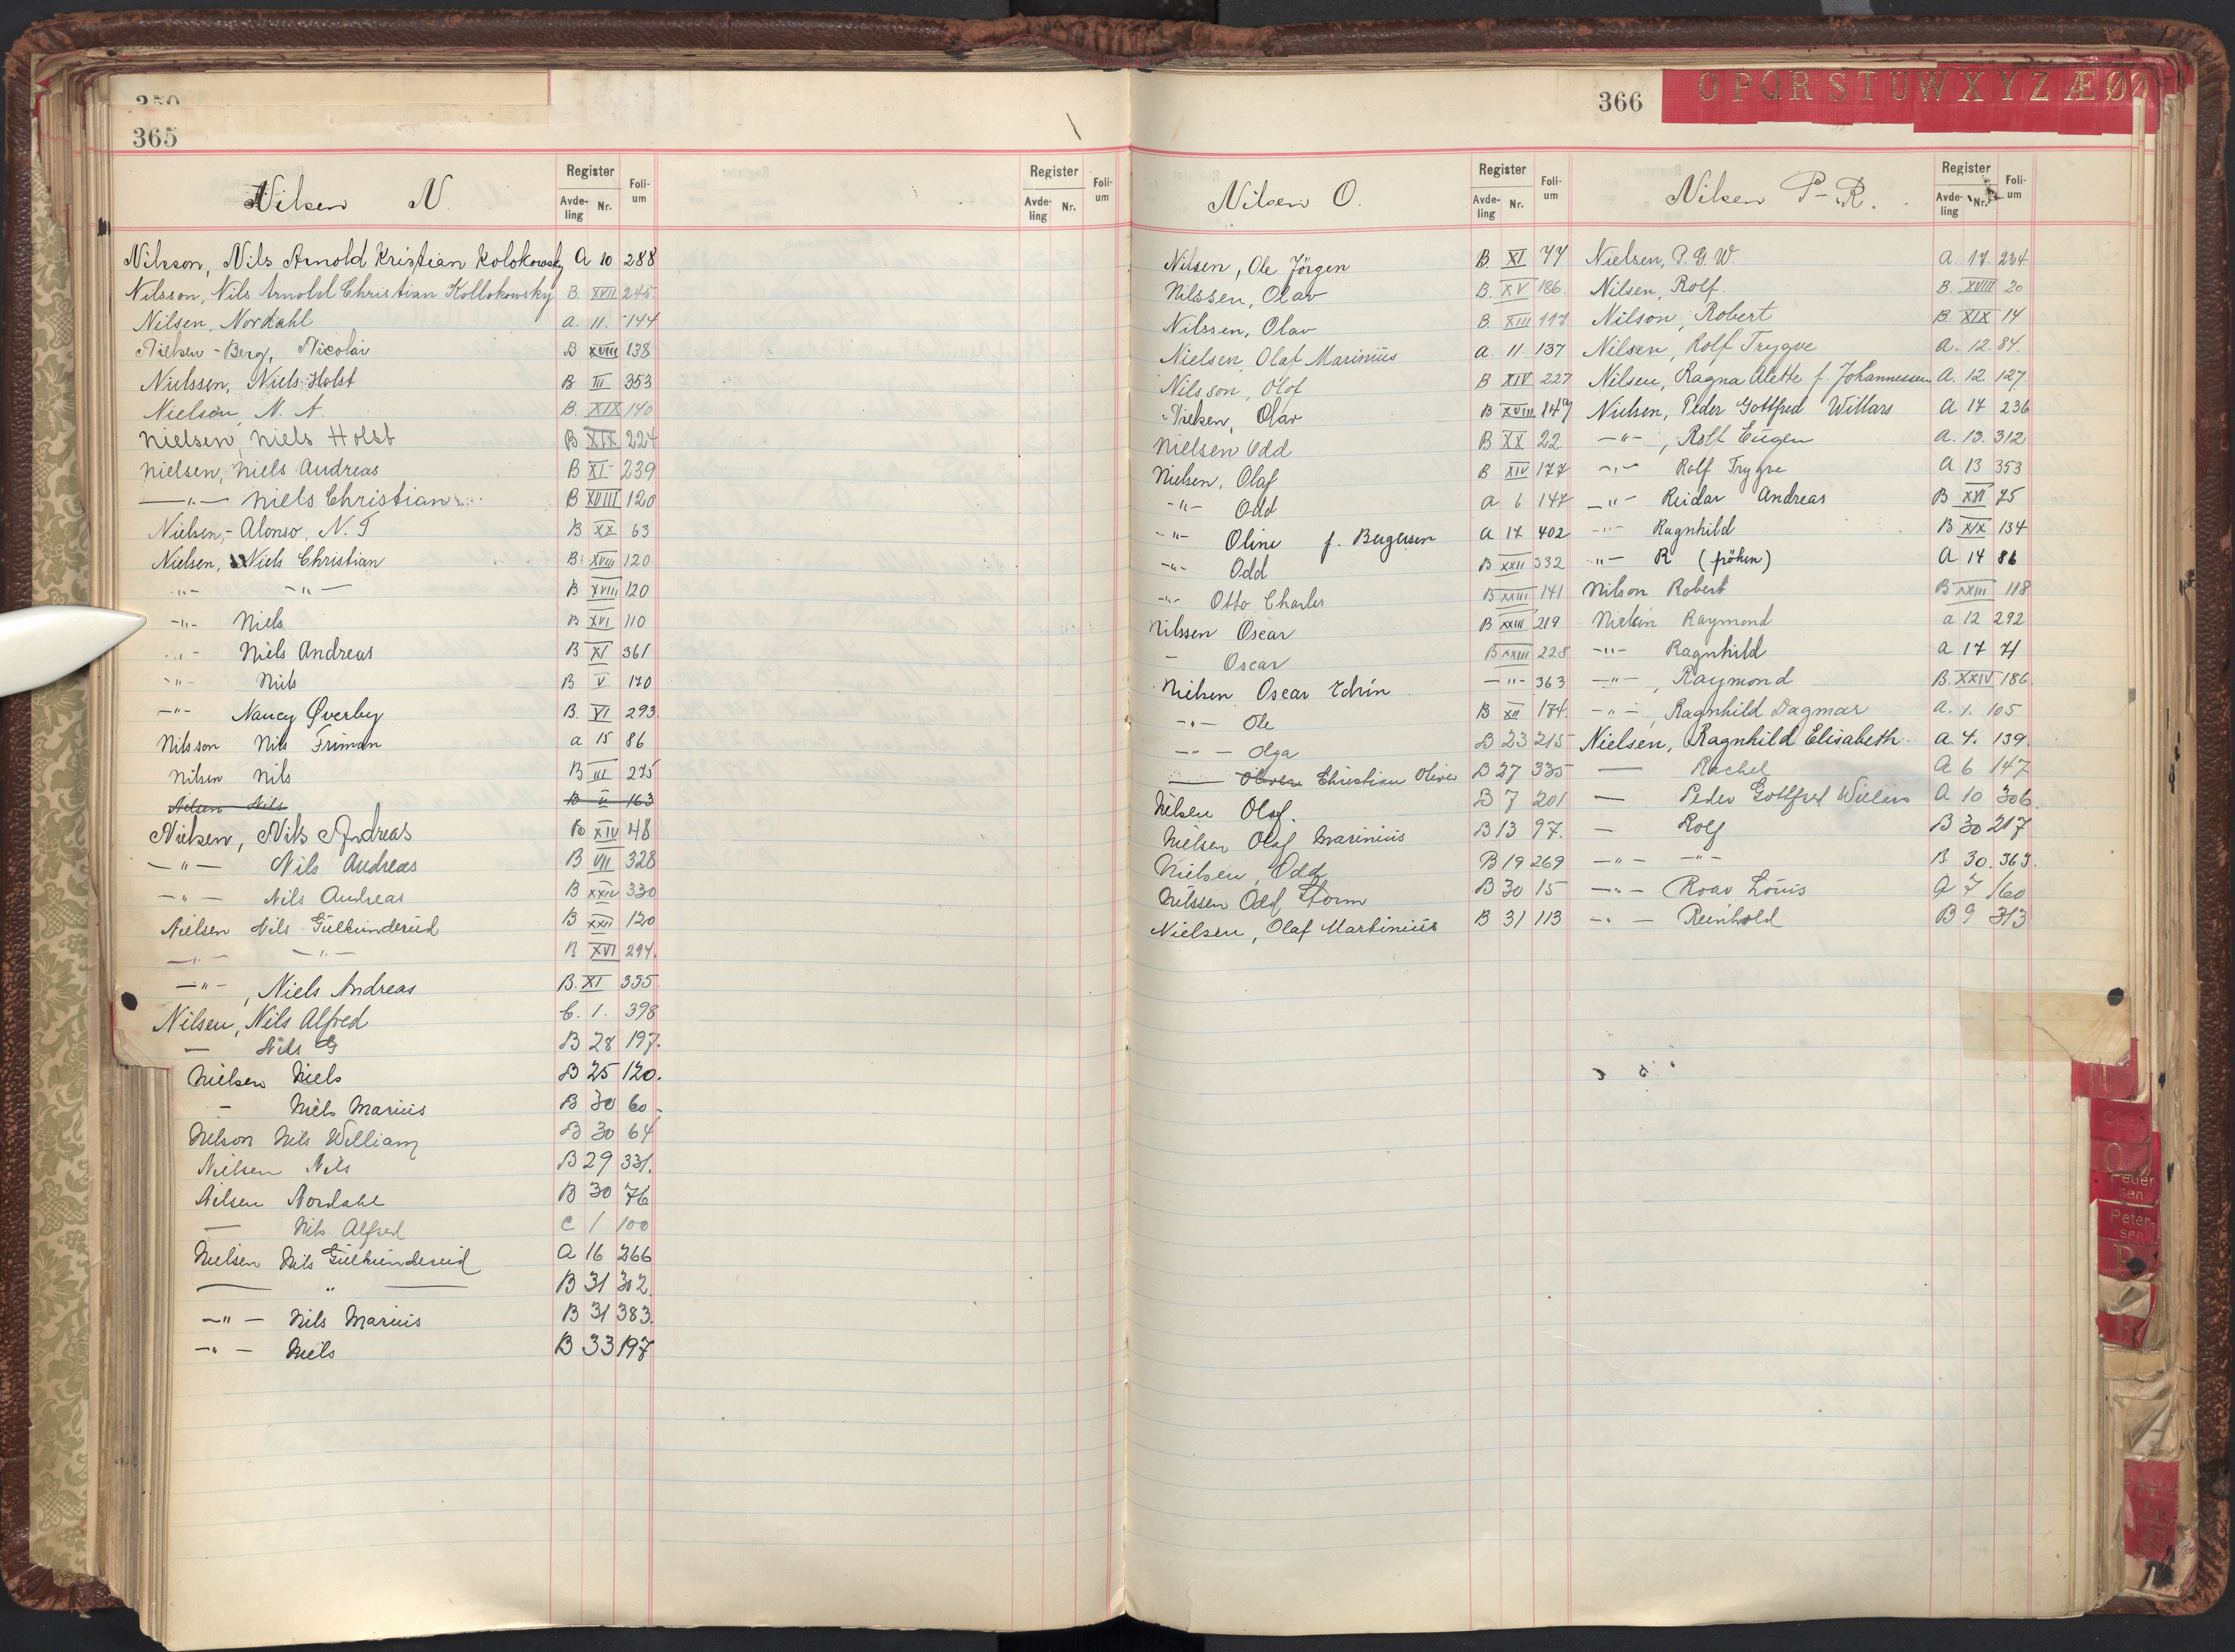 365
Nilsen N.
Register
Avde-ling Nr. Foli-um
Register
Avde-ling Nr. Foli-um
Nilsson, Nils Arnold Kristian Kolokowsky A 10 288
Nilsson, Nils Arnold Christian Kollokowsky B. XVII 245.
Nilsen, Nordahl a. 11. 144
Nielsen-Berg, Nicolai B XVIII 138
Nielssen, Niels Holst B III 353
Nielsen, N. A. B. XIX 140
Nielsen, Niels Holst B XIX 224
Nielsen, Niels Andreas B XI 239
—"— Niels Christian B XVIII 120
Nielsen,- Alonso, N. T B XX 63
Nielsen, Niels Christian B: XVIII 120
-"- -"- B XVIII 120
-"- Niels B XVI 110
-"- Niels Andreas B XI 361
-"- Nils B V 170
-"- Nancy Øverby B. VI 293.
Nilsson Nils Friman a 15 86
Nilsen Nils B III 275
Nilsen Nils B II 163
Nielsen, Nils Andreas B XIV 48
—"— Nils Andreas B VII 328
—"— Nils Andreas B XXIV 330
Nielsen Nils Gulkunderud B XXII 120
—"— —"— B XVI 294.
—"—, Niels Andreas B. XI 355.
Nilsen, Nils Alfred C. 1. 398
— Nils G B 28 197.
Nielsen Niels B 25 120.
— Niels Marius B 30 60
Nilson Nils William B 30 64
Nielsen Nils B 29 331.
Nilsen Nordahl B 30 76
— Nils Alfred C 1 100
Nielsen Nils Gulkunderud A 16 266
— " — B 31 302
—"— Nils Marius B 31 383.
—"— Niels B 33 197
366
O P Q R S T U W X Y Z Æ Ø
Nilsen O.
Register
Avde-ling Nr. Foli-um
Nilsen, Ole Jörgen B. XI 77
Nilssen, Olav B. XV 186.
Nilssen, Olav B. XIII 117
Nielsen, Olaf Marinius a. 11. 137
Nilsson, Olof B XIV 227
Nielsen, Olav B XVIII 147
Nielsen Odd B XX 22
Nielsen, Olaf B XIV 177
-"- Odd a 6 147
-"- Oline f. Bergersen A 17 402
-"- Odd B XXII 332
-"- Otto Charles B XXIII 141
Nilssen Oscar B XXIII 219
- Oscar B XXIII 228
Nielsen Oscar Edvin —"— 363
-"- Ole B XII 174.
-"- Olga B 23 215
— Oliver Christian Oliver B 27 335
Nielsen Olaf. B 7 201
Nielsen Olaf Marinius B 13 97.
Nielsen, Odd B 19 269
Nilssen Odd Storm B 30 15
Nielsen, Olaf Martinius B 31 113
Nilsen P-R.
Register
Avde-ling Nr. Foli-um
Nielsen, P. G. W. A. 17. 234
Nilsen, Rolf. B. XVIII 20
Nilson, Robert B. XIX 14
Nilsen, Rolf Trygve a. 12. 84.
Nilsen, Ragna Alette f. Johannessen A. 12. 127
Nielsen, Peder Gottfred Willars A 17 236
—"—, Rolf Eugen A. 13. 312
—"— Rolf Trygve A 13 353
—"— Reidar Andreas B XVI 75
—"— Ragnhild B XIX 134
—"— R (fröken) A 14 86
Nilson Robert B XXIII 118
Nielsen Raymond a 12 292
—"— Ragnhild a 17 71
—"—, Raymond B. XXIV 186.
—"—, Ragnhild Dagmar a. 1. 105
Nielsen, Ragnhild Elisabeth a. 4. 139.
— Rachel A 6 147
— Peder Gottfred Willars A 10 306.
— Rolf B 30 217
—"— —"— B 30. 363.
—"— Roar Louis A 7 160
—"— Reinhold B 9 313
Peder-sen
Peter-sen
P